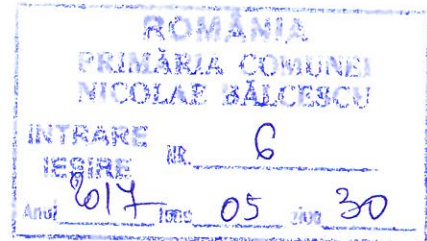 ROMÂNIA
PRIMĂRIA COMUNEI
NICOLAE BĂLCESCU
INTRARE
IEȘIRE NR. 6
Anul 2017 luna 05 ziua 30